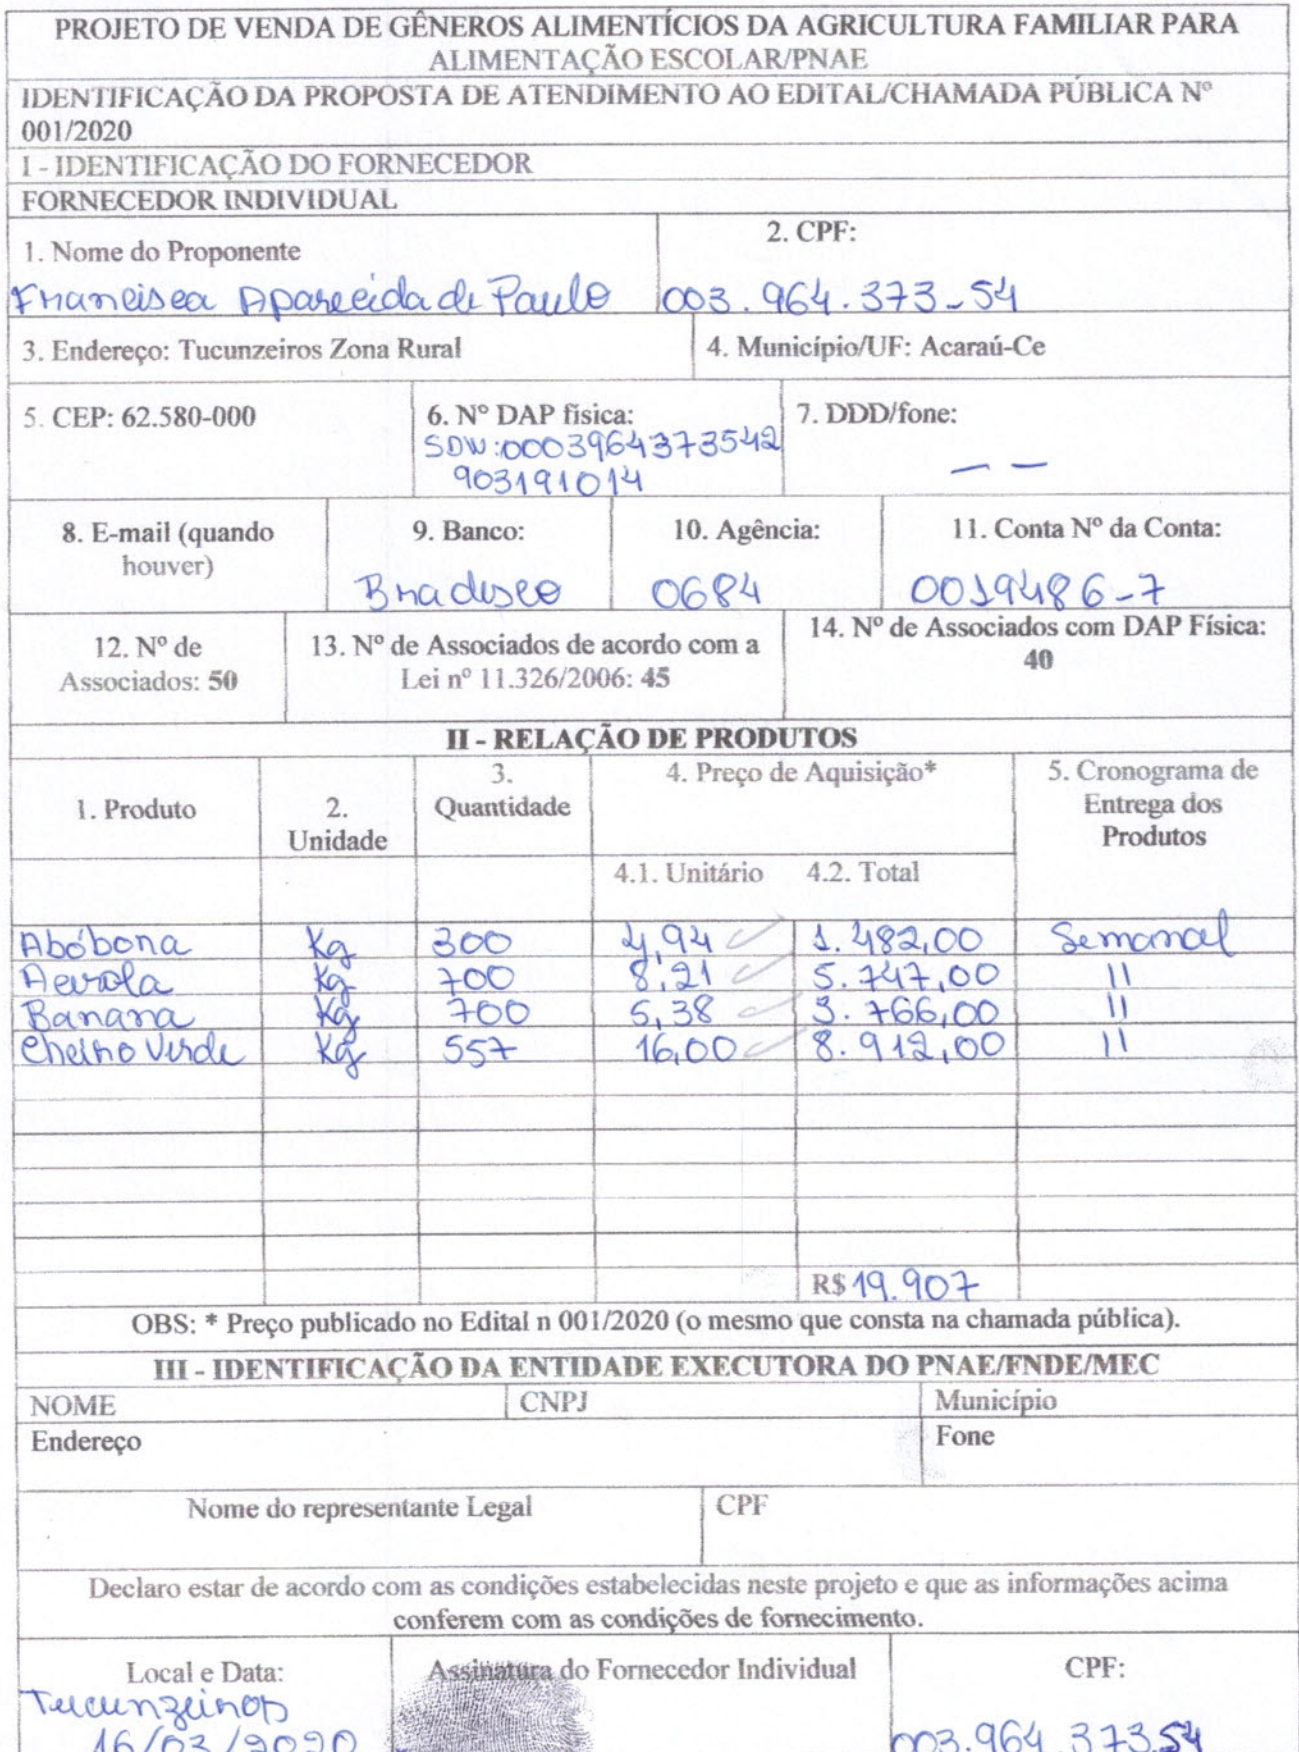 PROJETO DE VENDA DE GÊNEROS ALIMENTÍCIOS DA AGRICULTURA FAMILIAR PARA
ALIMENTAÇÃO ESCOLAR/PNAE
IDENTIFICAÇÃO DA PROPOSTA DE ATENDIMENTO AO EDITAL/CHAMADA PÚBLICA Nº
001/2020
I - IDENTIFICAÇÃO DO FORNECEDOR
FORNECEDOR INDIVIDUAL
1. Nome do Proponente
Francisca Aparecida de Paulo
2. CPF:
003.964.373-54
3. Endereço: Tucunzeiros Zona Rural
4. Município/UF: Acaraú-Ce
5. CEP: 62.580-000
6. Nº DAP física:
SDW:0003964373542
903191014
7. DDD/fone:
— —
8. E-mail (quando
houver)
9. Banco:
Bradesco
10. Agência:
0684
11. Conta Nº da Conta:
0019486-7
12. Nº de
Associados: 50
13. Nº de Associados de acordo com a
Lei nº 11.326/2006: 45
14. Nº de Associados com DAP Física:
40
II - RELAÇÃO DE PRODUTOS
1. Produto
2.
Unidade
3.
Quantidade
4. Preço de Aquisição*
5. Cronograma de
Entrega dos
Produtos
4.1. Unitário 4.2. Total
Abóbona Kg 300 4,94 1.482,00 Semanal
Acerola Kg 700 8,21 5.747,00 11
Banana Kg 700 5,38 3.766,00 11
Cheiro Verde Kg 557 16,00 8.912,00 11
R$ 19.907
OBS: * Preço publicado no Edital n 001/2020 (o mesmo que consta na chamada pública).
III - IDENTIFICAÇÃO DA ENTIDADE EXECUTORA DO PNAE/FNDE/MEC
NOME CNPJ Município
Endereço Fone
Nome do representante Legal CPF
Declaro estar de acordo com as condições estabelecidas neste projeto e que as informações acima
conferem com as condições de fornecimento.
Local e Data:
Tucunzeiros
16/03/2020
Assinatura do Fornecedor Individual
CPF:
003.964.373.54